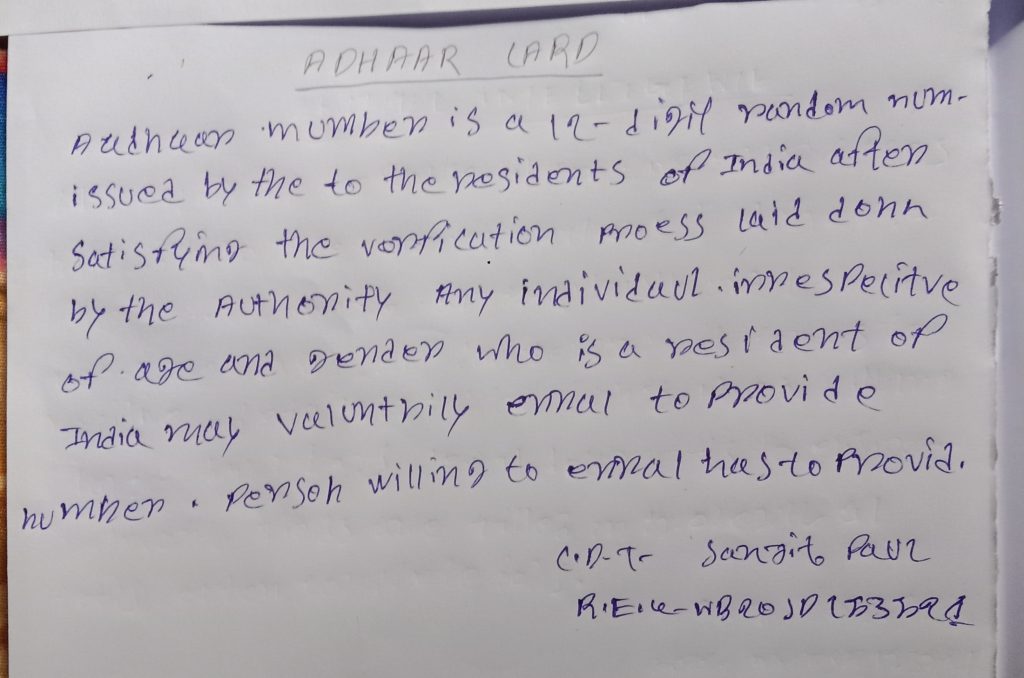 ADHAAR CARD
Aadhaar number is a 12-digit random num-
issued by the to the residents of India after
Satisfying the verification Proess laid down
by the Authority Any individaul. irrespecitve
of age and gender who is a resident of
India may valuntrily enrral to Provide
number. Person willing to enrral has to Provid.
C.D.T- Sanjit Paul